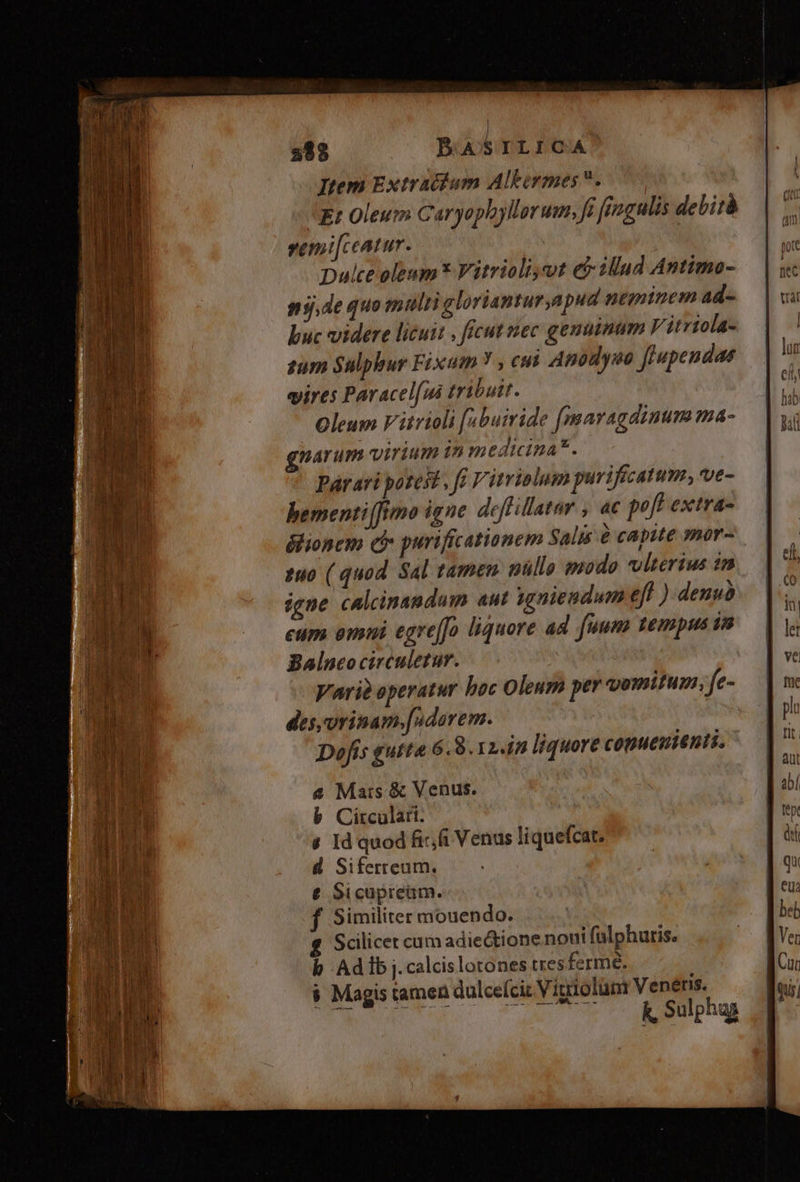 588 BASILICA
Item Extractum Alkermes ᵘ.
Et Oleum Caryophyllorum, si singulis debità
remisceatur.
Dulce oleum ˣ Vitrioli, vt & illud Antimo-
nij, de quo multi gloriantur, apud neminem ad-
huc videre licuit, sicut nec genuinum Vitriola-
tum Sulphur Fixum ʸ, cui Anodynas stupendas
vires Paracelsus tribuit.
Oleum Vitrioli subuiride smaragdinum ma-
gnarum virium in medicina ᶻ.
Parari potest, si Vitriolum purificatum, ve-
hementissimo igne destillatur, ac post extra-
ctionem & purificationem Salis è capite mor-
tuo (quod Sal tamen nullo modo vlterius in
igne calcinandum aut igniendum est) denuò
cum omni egresso liquore ad suum tempus in
Balneo circuletur.
Variè operatur hoc Oleum per vomitum, se-
des, vrinam, sudorem.
Dosis guttæ 6.8.12. in liquore conuenienti.
a Mars & Venus.
b Circulari.
c Id quod fit, si Venus liquescat.
d Si ferreum.
e Si cupreum.
f Similiter mouendo.
g Scilicet cum adiectione noui sulphuris.
h Ad ℔ j. calcis lotones tres fermè.
i Magis tamen dulcescit Vitriolum Veneris.
k, Sulphug